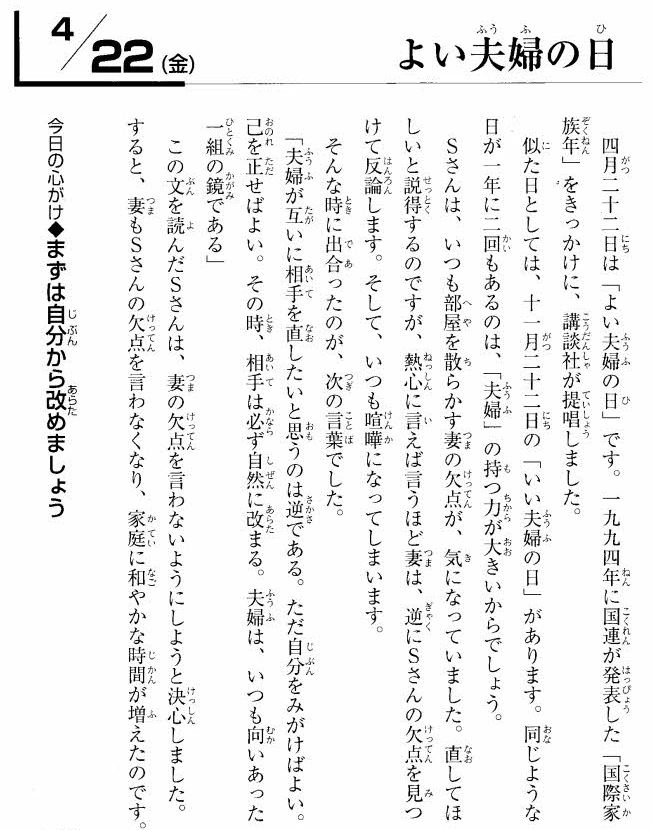 4/22(金)
よい夫婦の日
四月二十二日は「よい夫婦の日」です。一九九四年に国連が発表した「国際家
族年」をきっかけに、講談社が提唱しました。
似た日としては、十一月二十二日の「いい夫婦の日」があります。同じような
日が一年に二回もあるのは、「夫婦」の持つ力が大きいからでしょう。
Sさんは、いつも部屋を散らかす妻の欠点が、気になっていました。直してほ
しいと説得するのですが、熱心に言えば言うほど妻は、逆にSさんの欠点を見つ
けて反論します。そして、いつも喧嘩になってしまいます。
そんな時に出合ったのが、次の言葉でした。
「夫婦が互いに相手を直したいと思うのは逆である。ただ自分をみがけばよい。
己を正せばよい。その時、相手は必ず自然に改まる。夫婦は、いつも向いあった
一組の鏡である」
この文を読んだSさんは、妻の欠点を言わないようにしようと決心しました。
すると、妻もSさんの欠点を言わなくなり、家庭に和やかな時間が増えたのです。
今日の心がけ◆まずは自分から改めましょう